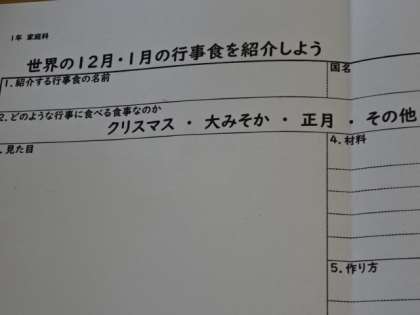 1年 家庭科
世界の12月・1月の行事食を紹介しよう
1.紹介する行事食の名前
国名
2.どのような行事に食べる食事なのか
クリスマス ・ 大みそか ・ 正月 ・ その他
.見た目
4.材料
5.作り方